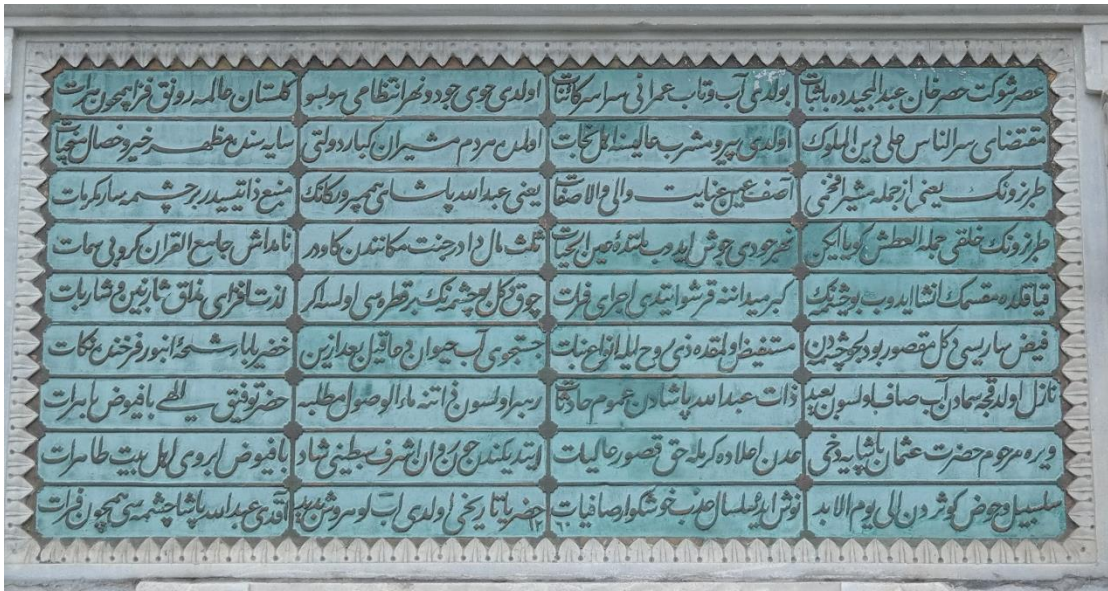 عصر شوكت حصر خان عبدالمجیدده باثبات بولدی آب و تاب عمرانی سراسر كائنات اولدی جوی جود و نهر انتظامی سوبسو گلستان عالمه رونق فزا همچون هرات
مقتضای سر الناس علی دین الملوك اولدی پیرو مشرب عالیسنه اهل نجات اولدن مردم مشیران كبار دولتی سایه سنده مظهر خیر و خصال
طرز ونك یعنی از جمله مشیر افخمی آصف عین عنایت والی والا صفات یعنی عبدالله پاشای همپرور كانك منبع ذاتیسیدر بر چشمه سار مكرمات
طرز ونك خلقی جمله العطش كویا ایكن نهر جودی جوش ایدوب عین الحیات ثلث مال داد جنت مكانندن كاودر نامداش جامع القران كروبی سمات
قیاقلده مقسمك انشا ایدوب بو چشمه نك كبر میداننه قرشو ایتدی اجرای فرات چوق دكل بو چشمه نك بر قطره سی اولسه اكر لذت افزای مذاق شاربین و شاربات
فیض ساریسی دكل مقصور بو دلجو چشمه دن مستفیض اولمقده ذی روح ایله انواع نبات جستجوی آب حیوان دخی قیل بعد ازین خضر یابا رشحه فرخنده نكات
نازل اولدقجه سمادن آب صاف اولسون بعید ذات عبدالله پاشادن عموم حادثات رهبر اولسون ذاتنه ماء الوصول مطلبه خضر توفیق الهی با فیوض باهرات
ویره مرحوم حضرت عثمان پاشایه دخی عدن اعلاده كرمله حق قصور عالیات ایتدیكندن روان اشرف سبطینی شاد با فیوض ابروی اهل بیت طاهرات
سلسبیل و حوض كوثردن الی یوم الابد نوش ایده سلسال عذب خوشكوار صافیات حضریا تاریخی اولدی آب لوله آقدی عبدالله پاشا چشمه سی همچون فرات
١٢٦٠